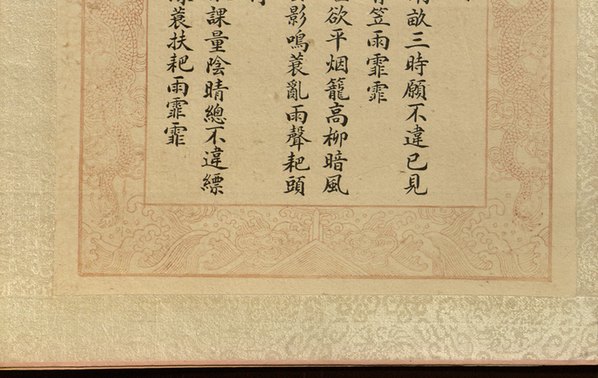 畝三時願不違已見
笠雨霏霏
欲平烟籠高柳暗風
影鳴蓑亂雨聲耙頭
課量陰晴總不違縹
蓑扶耙雨霏霏